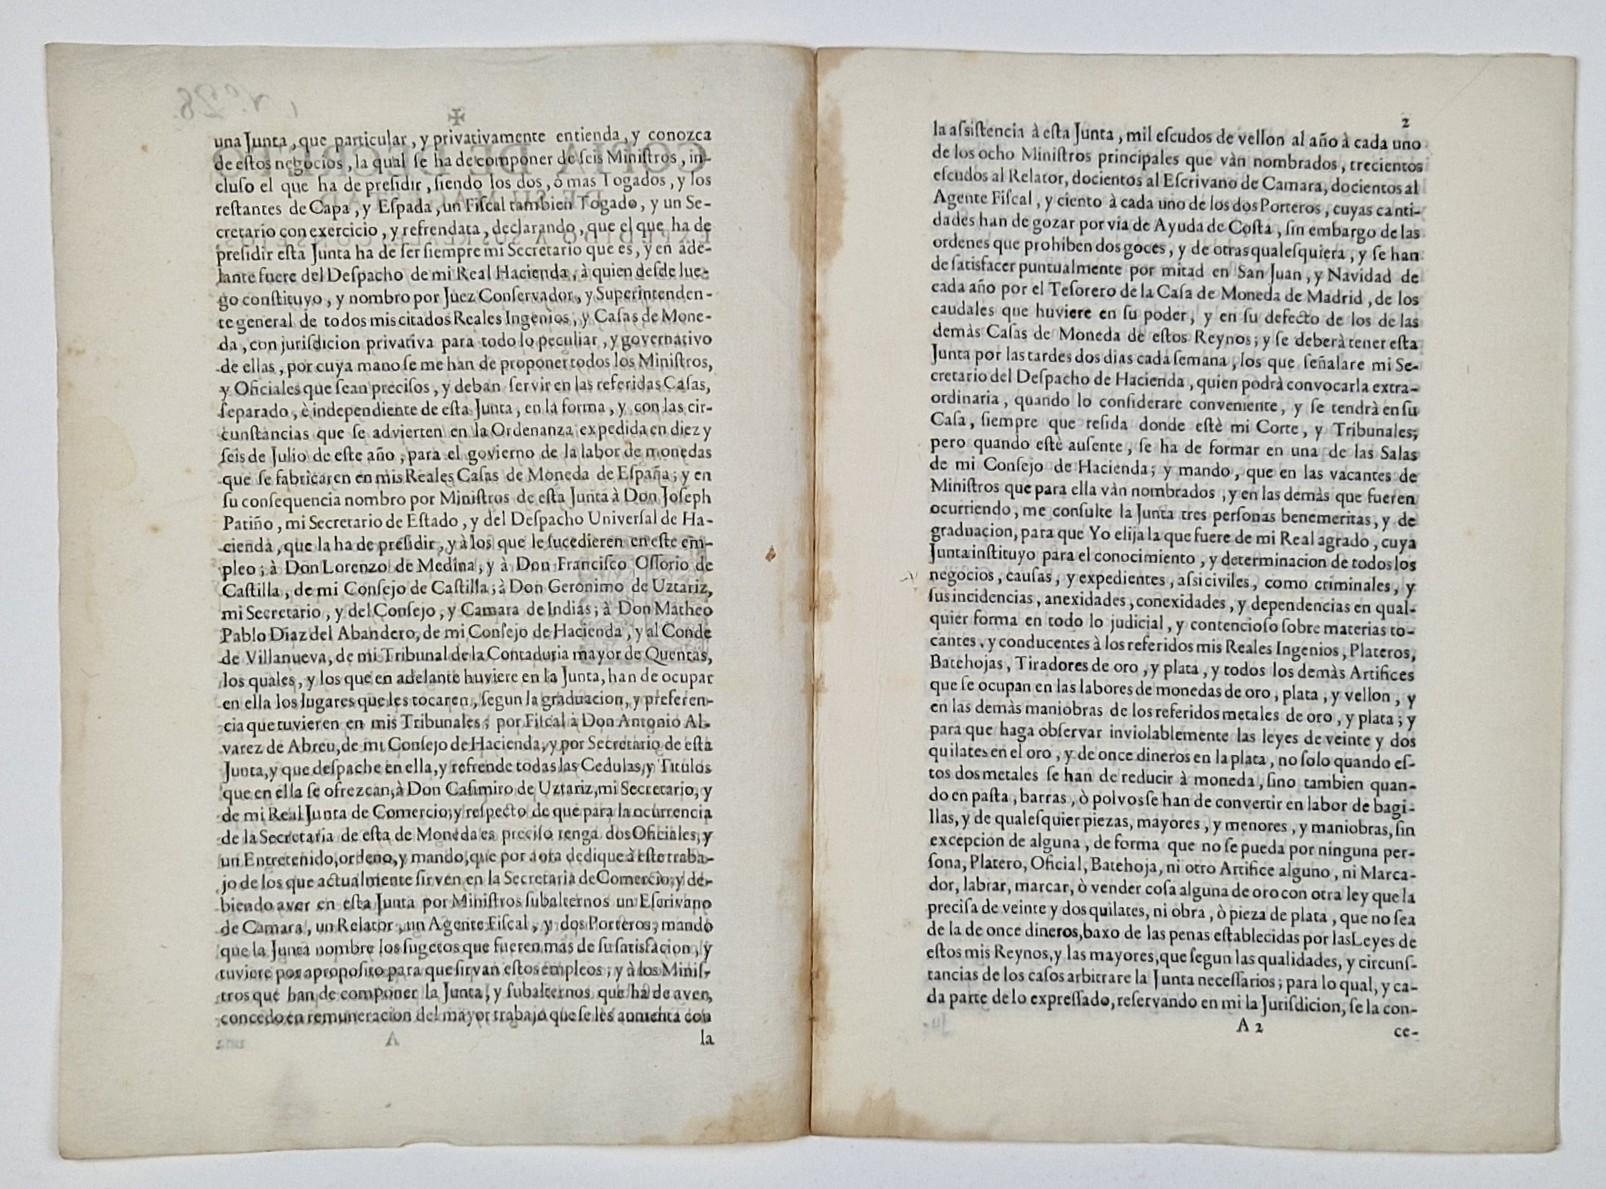 una Junta, que particular, y privativamente entienda, y conozca
de eſtos negocios, la qual ſe ha de componer de ſeis Miniſtros, in-
cluſo el que ha de preſidir, ſiendo los dos, ò mas Togados, y los
reſtantes de Capa, y Eſpada, un Fiſcal tambien Togado, y un Se-
cretario con exercicio, y refrendata, declarando, que el que ha de
preſidir eſta Junta ha de ſer ſiempre mi Secretario que es, y en ade-
lante fuere del Deſpacho de mi Real Hacienda, à quien deſde lue-
go conſtituyo, y nombro por Juez Conſervador, y Superintenden-
te general de todos mis citados Reales Ingenios, y Caſas de Mone-
da, con jurisdicion privativa para todo lo peculiar, y governativo
de ellas, por cuya mano ſe me han de proponer todos los Miniſtros,
y Oficiales que ſean preciſos, y deban ſervir en las referidas Caſas,
ſeparado, è independiente de eſta Junta, en la forma, y con las cir-
cunſtancias que ſe advierten en la Ordenanza expedida en diez y
ſeis de Julio de eſte año, para el govierno de la labor de monedas
que ſe fabricaren en mis Reales Caſas de Moneda de Eſpaña; y en
ſu conſequencia nombro por Miniſtros de eſta Junta à Don Joſeph
Patiño, mi Secretario de Eſtado, y del Deſpacho Univerſal de Ha-
cienda, que la ha de preſidir, y à los que le ſucedieren en eſte em-
pleo; à Don Lorenzo de Medina, y à Don Franciſco Oſſorio de
Caſtilla, de mi Conſejo de Caſtilla; à Don Geronimo de Uztariz,
mi Secretario, y del Conſejo, y Camara de Indias; à Don Matheo
Pablo Diaz del Abandero, de mi Conſejo de Hacienda, y al Conde
de Villanueva, de mi Tribunal de la Contaduria mayor de Quentas,
los quales, y los que en adelante huviere en la Junta, han de ocupar
en ella los lugares que les tocaren, ſegun la graduacion, y preferen-
cia que tuvieren en mis Tribunales; por Fiſcal à Don Antonio Al-
varez de Abreu, de mi Conſejo de Hacienda, y por Secretario de eſta
Junta, y que deſpache en ella, y refrende todas las Cedulas, y Titulos
que en ella ſe ofrezcan, à Don Caſimiro de Uztariz, mi Secretario, y
de mi Real Junta de Comercio; y reſpecto de que para la ocurrencia
de la Secretaria de eſta de Moneda es preciſo tenga dos Oficiales, y
un Entretenido, ordeno, y mando, que por aora dedique à eſte traba-
jo de los que actualmente ſirven en la Secretaria de Comercio; y de-
biendo aver en eſta Junta por Miniſtros ſubalternos un Eſcrivano
de Camara, un Relator, un Agente Fiſcal, y dos Porteros, mando
que la Junta nombre los ſugetos que fueren mas de ſu ſatisfacion, y
tuviere por apropoſito para que ſirvan eſtos empleos; y à los Miniſ-
tros que han de componer la Junta, y ſubalternos que ha de aver,
concedo en remuneracion del mayor trabajo que ſe les aumenta con
A la
2
la aſsiſtencia à eſta Junta, mil eſcudos de vellon al año à cada uno
de los ocho Miniſtros principales que vàn nombrados, trecientos
eſcudos al Relator, docientos al Eſcrivano de Camara, docientos al
Agente Fiſcal, y ciento à cada uno de los dos Porteros, cuyas canti-
dades han de gozar por via de Ayuda de Coſta, ſin embargo de las
ordenes que prohiben dos goces, y de otras qualeſquiera, y ſe han
de ſatisfacer puntualmente por mitad en San Juan, y Navidad de
cada año por el Teſorero de la Caſa de Moneda de Madrid, de los
caudales que huviere en ſu poder, y en ſu defecto de los de las
demàs Caſas de Moneda de eſtos Reynos; y ſe deberà tener eſta
Junta por las tardes dos dias cada ſemana, los que ſeñalare mi Se-
cretario del Deſpacho de Hacienda, quien podrà convocarla extra-
ordinaria, quando lo conſiderare conveniente, y ſe tendrà en ſu
Caſa, ſiempre que reſida donde eſtè mi Corte, y Tribunales;
pero quando eſtè auſente, ſe ha de formar en una de las Salas
de mi Conſejo de Hacienda; y mando, que en las vacantes de
Miniſtros que para ella vàn nombrados, y en las demàs que fueren
ocurriendo, me conſulte la Junta tres perſonas benemeritas, y de
graduacion, para que Yo elija la que fuere de mi Real agrado, cuya
Junta inſtituyo para el conocimiento, y determinacion de todos los
negocios, cauſas, y expedientes, aſsi civiles, como criminales, y
ſus incidencias, anexidades, conexidades, y dependencias en qual-
quier forma en todo lo judicial, y contencioſo ſobre materias to-
cantes, y conducentes à los referidos mis Reales Ingenios, Plateros,
Batehojas, Tiradores de oro, y plata, y todos los demàs Artifices
que ſe ocupan en las labores de monedas de oro, plata, y vellon, y
en las demàs maniobras de los referidos metales de oro, y plata; y
para que haga obſervar inviolablemente las leyes de veinte y dos
quilates en el oro, y de once dineros en la plata, no ſolo quando eſ-
tos dos metales ſe han de reducir à moneda, ſino tambien quan-
do en paſta, barras, ò polvos ſe han de convertir en labor de bagi-
llas, y de qualeſquier piezas, mayores, y menores, y maniobras, ſin
excepcion de alguna, de forma que no ſe pueda por ninguna per-
ſona, Platero, Oficial, Batehoja, ni otro Artifice alguno, ni Marca-
dor, labrar, marcar, ò vender coſa alguna de oro con otra ley que la
preciſa de veinte y dos quilates, ni obra, ò pieza de plata, que no ſea
de la de once dineros, baxo de las penas eſtablecidas por las Leyes de
eſtos mis Reynos, y las mayores, que ſegun las qualidades, y circunſ-
tancias de los caſos arbitrare la Junta neceſſarios; para lo qual, y ca-
da parte de lo expreſſado, reſervando en mi la Juriſdicion, ſe la con-
A 2 ce-